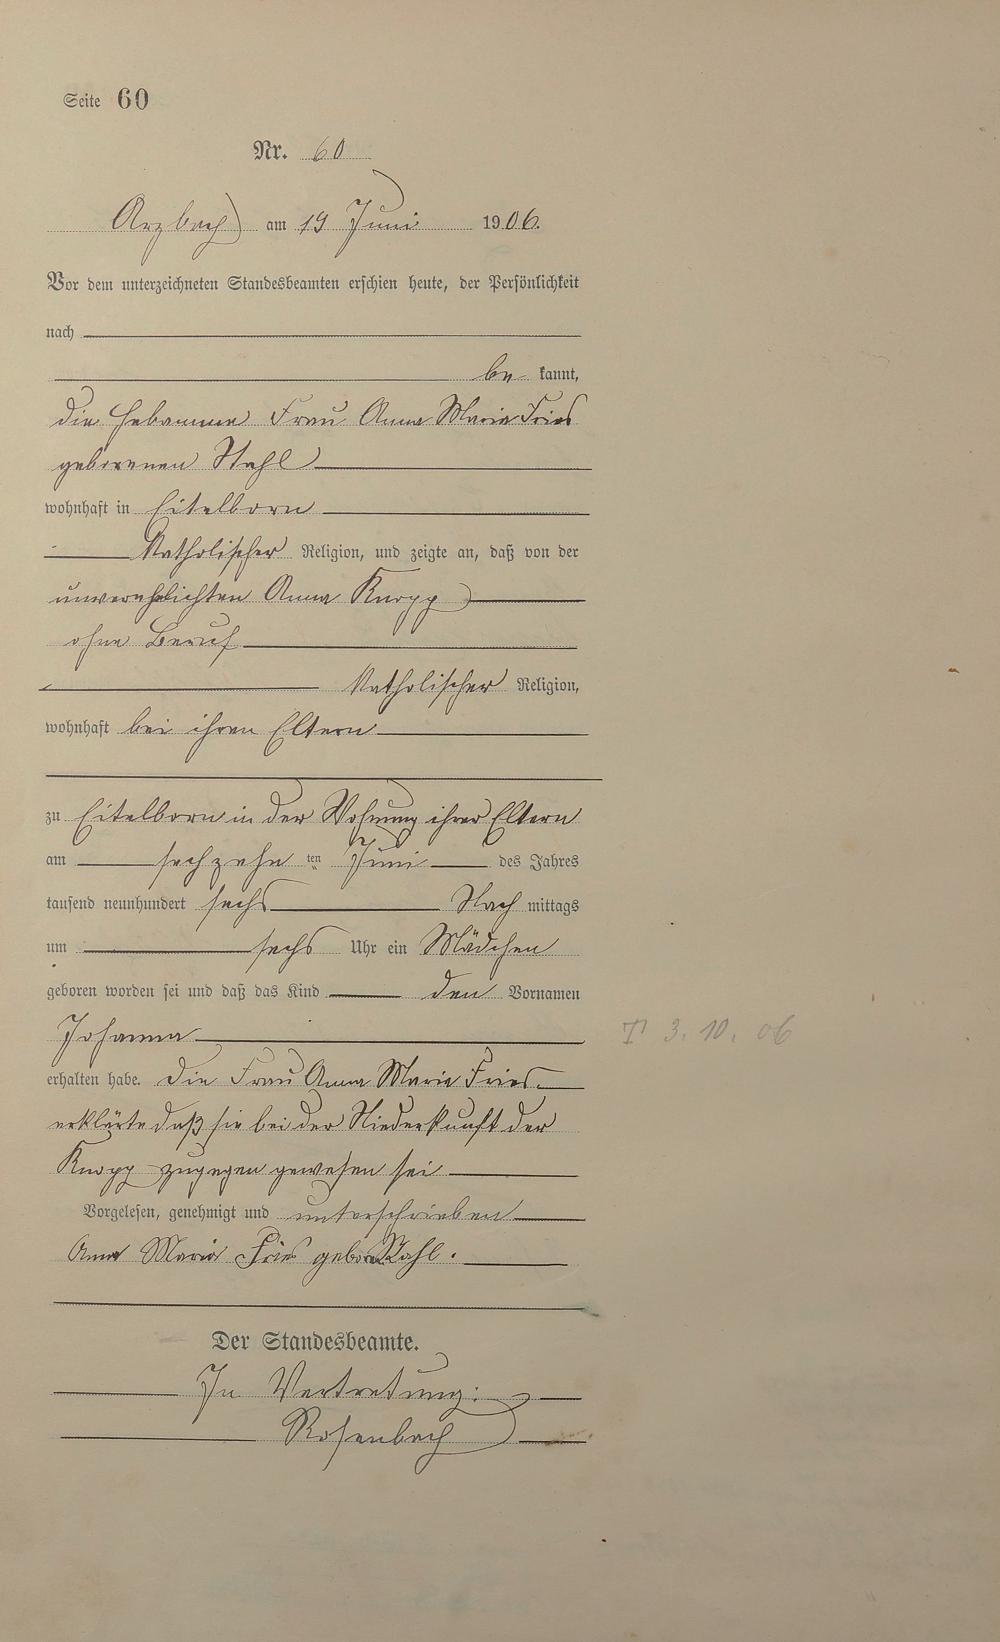 Seite 60
Nr. 60
Arzbach am 19 Juni 1906.
Vor dem unterzeichneten Standesbeamten erschien heute, der Persönlichkeit
nach
be kannt,
die Hebamme Frau Anna Maria Fries
geborenen Stahl
wohnhaft in Eitelborn
Katholischer Religion, und zeigte an, daß von der
unverehelichten Anna Knopp
ohne Beruf
Katholischer Religion,
wohnhaft bei ihren Eltern
zu Eitelborn in der Wohnung ihrer Eltern
am sechzehn ten Juni des Jahres
tausend neunhundert sechs Nach mittags
um sechs Uhr ein Mädchen
geboren worden sei und daß das Kind den Vornamen
Johanna
T 3. 10. 06
erhalten habe. Die Frau Anna Maria Fries
erklärte daß sie bei der Niederkunft der
Knopp zugegen gewesen sei
Vorgelesen, genehmigt und unterschrieben
Anna Maria Fries geboren Stahl.
Der Standesbeamte.
In Vertretung:
Rosenbach